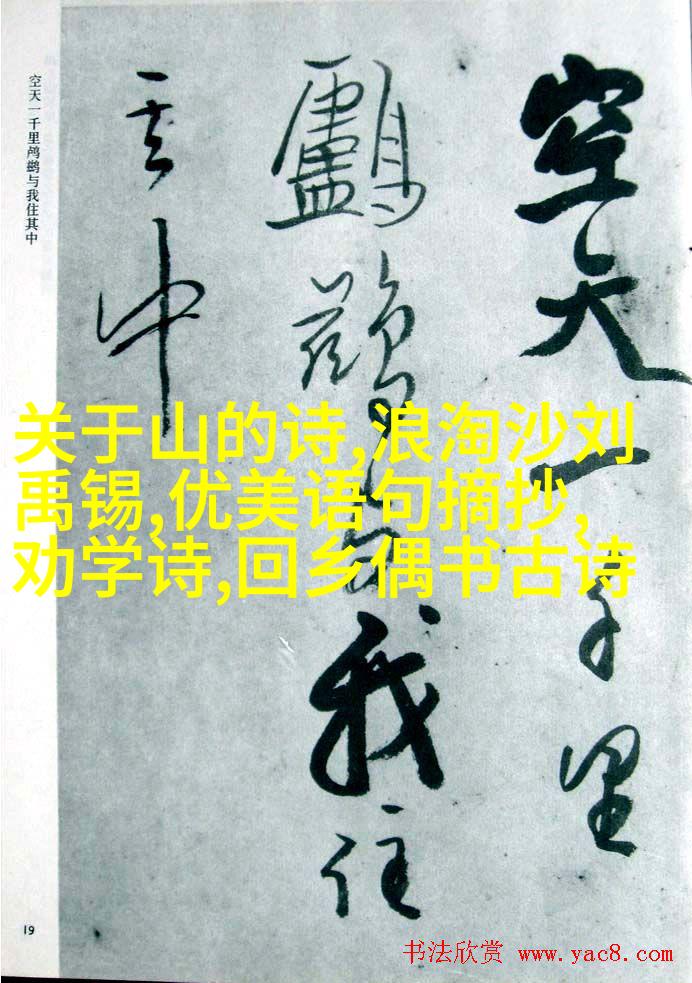 空天一千里
鸕鷀与我住
其中
空天一千里鸬鹚与我住其中
关于山的诗,浪淘沙刘
禹锡,优美语句摘抄,
劝学诗,回乡偶书古诗
19
书法欣赏 www.yac8.com